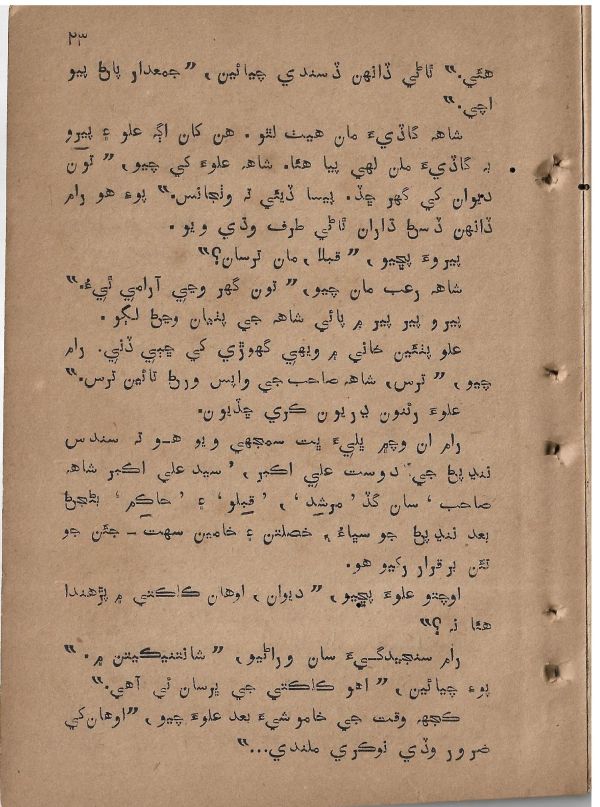 ۲۳
هئي.“ ٿاڻي ڏانهن ڏسندي چيائين، ”جمعدار پاڻ پيو
اچي.“
شاهه گاڏيءَ مان هيٺ لٿو. هن کان اڳ علو ۽ پيرو
به گاڏيءَ مان لهي پيا هئا. شاهه علوءَ کي چيو، ”تون
ديوان کي گهر ڇڏ. پيسا ڏيئي ته وٺجانس.“ پوءِ هو رام
ڏانهن ڏسڻ ڌاران ٿاڻي طرف وڌي ويو.
پيروءَ پڇيو، ”قبلا، مان ترسان؟“
شاهه رعب مان چيو، ”تون گهر وڃي آرامي ٿيءُ.“
پيرو پير پير ۾ پائي شاهه جي پٺيان وڃڻ لڳو.
علو پنئين خاني ۾ ويهي گهوڙي کي ڇٻي ڏني. رام
چيو، ”ترس، شاهه صاحب جي واپس ورڻ تائين ترس.“
علوءَ رئنون ڍريون ڪري ڇڏيون.
رام ان وچ۾ ڀليءَ ڀت سمجهي ويو هو ته سندس
ننڍپڻ جي دوست علي اڪبر، ’سيد علي اڪبر شاهه
صاحب‘ سان گڏ ’مرشد‘، ’قبلو‘ ۽ ’حاڪم‘ بڻجڻ
بعد ننڍپڻ جو سڀاءُ، خصلتن ۽ خامين سهت ـ جئن جو
تئن برقرار رکيو هو.
اوچتو علوءَ پڇيو، ”ديوان، اوهان ڪلڪتي ۾ پڙهندا
هئا نه؟“
رام سنجيدگيءَ سان وراڻيو، ”شانتنيڪيتن ۾.“
پوءِ چيائين، ”اهو ڪلڪتي جي ڀرسان ئي آهي.“
ڪجهه وقت جي خاموشيءَ بعد علوءَ چيو، ”اوهان کي
ضرور وڏي نوڪري ملندي...“